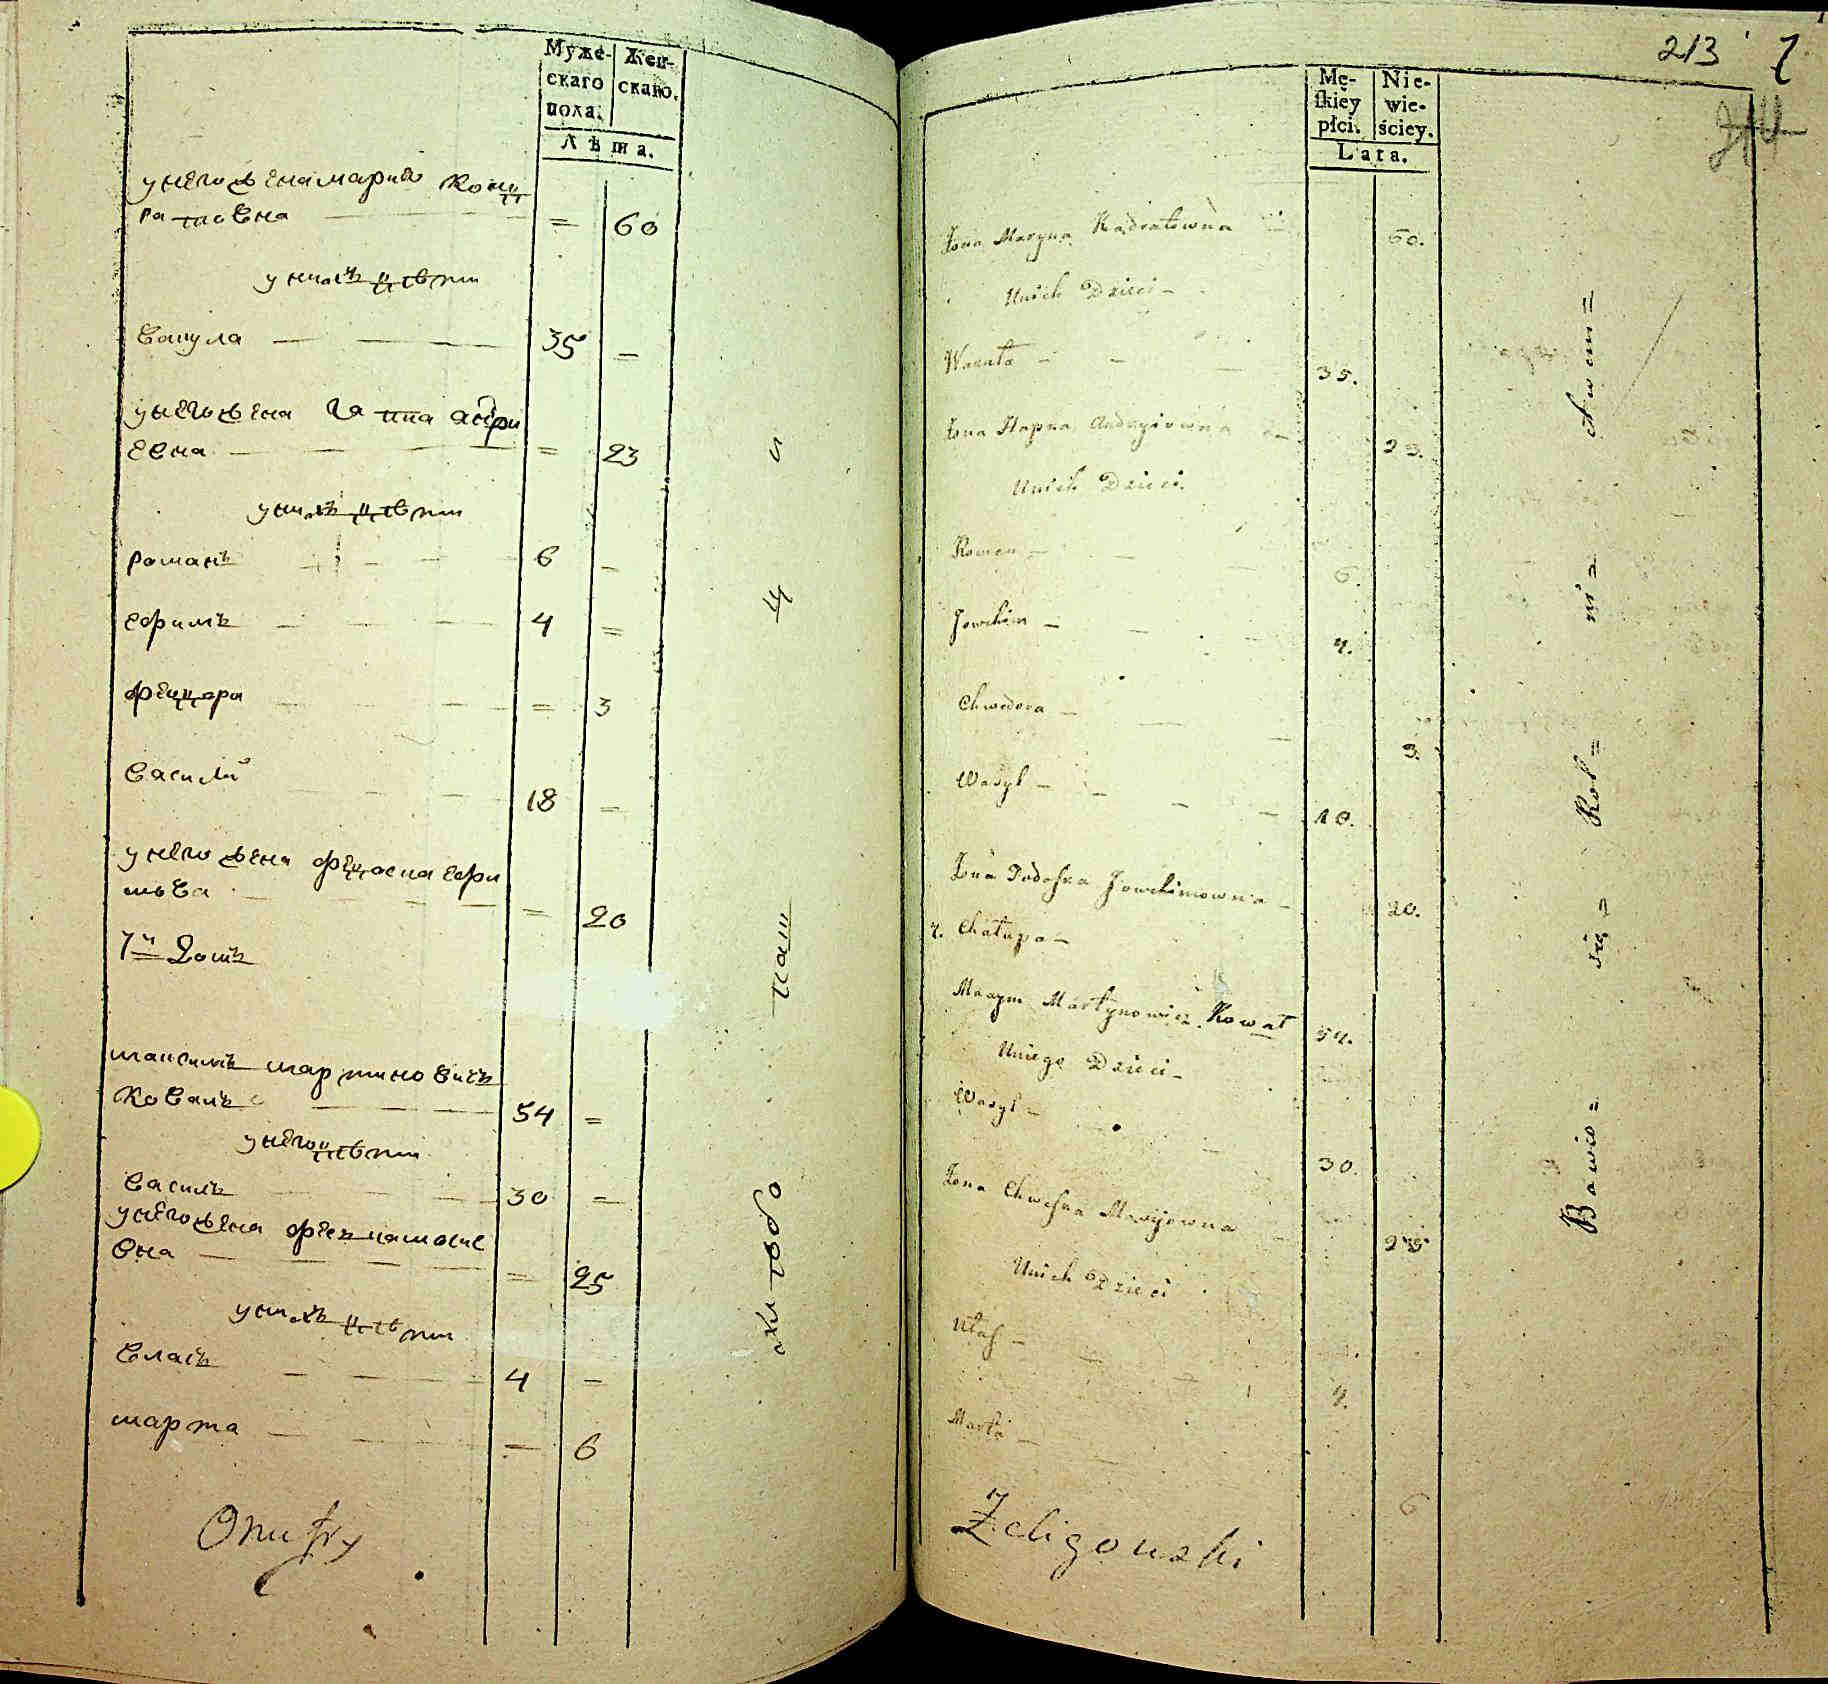 Муже-
скаго
пола.
Жен-
скаго.
Лѣта.
у него жена мария кон
ратовна = 60
у нихъ дѣти
вакула 35 –
у него жена гапка андри
евна = 23
у нихъ дѣти
романъ 6 –
ефимъ 4 =
федора = 3
василий 18 –
у него жена федоска ефи
мова = 20
7й Домъ
максимъ мартиновичъ
коваль 54 =
у него дѣти
василь 30 =
у него жена
вна = 25
у нихъ дѣти
власъ 4 –
марта – 6
Onufry
хлѣбо
паш
ц
и
213
7
214
Mę-
ſkiey
płci.
Nie-
wie-
ściey.
Lata.
Żona Maryna Kądratowna 60.
Unich Dzieci
Wakuła 35.
Żona Hapka Andrzyiowna 23.
Unich Dzieci
Roman 6.
Jowchim 4.
Chwedora 3.
Wasyl 18.
Żona Fedoſka Jowchimowna 20.
7. Chałupa
Maxym Martynowicz Kował 54.
Uniego Dzieci
Wasyl 30.
Żona Chweſka 25
Unich Dzieci
Ułas 4.
Marta 6
Żeligowski
Bawio=
się=
Rol=
ni=
ctwem=